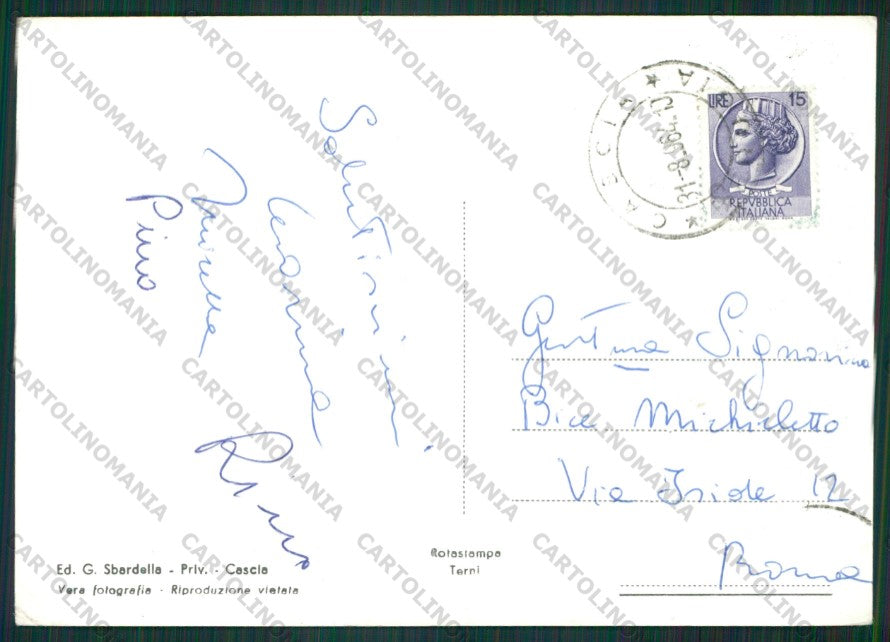 Salutissimi
Mirella
Pino
CASCIA
31-8.06
LIRE 15
POSTE
REPVBBLICA
ITALIANA
Gent.ma Signorina
Bice Michieletto
Via Iside 12
Roma
Ed. G. Sbardella - Priv. - Cascia
Vera fotografia - Riproduzione vietata
Rotastampa
Terni
CARTOLINOMANIA